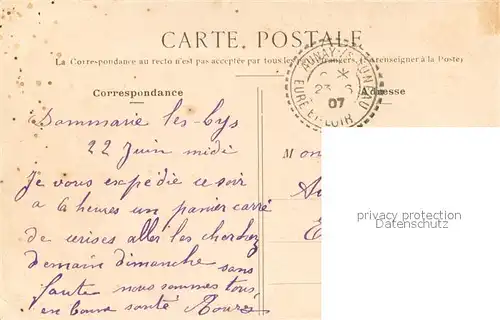 CARTE POSTALE
La Correspondance au recto n'est pas acceptée par tous les Pays étrangers. (Se renseigner à la Poste)
AUNAY-SS-AUNEAU
23 6
07
EURE ET LOIR
Correspondance
Adresse
Dommarie les Lys
22 Juin midi
Je vous expédie ce soir
a 6 heures un panier carré
de cerises aller les cherchez
demain dimanche sans
faute nous sommes tous
en bonne santé
M
privacy protection
Datenschutz